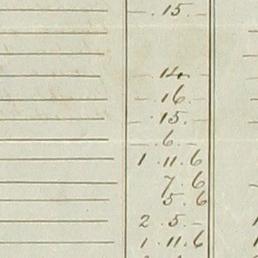 - . 15 . -
- 14 . -
- . 16 . -
- . 15 . -
- . 6 . -
1 . 11 . 6
7 . 6
5 . 6
2 . 5 . -
1 . 11 . 6